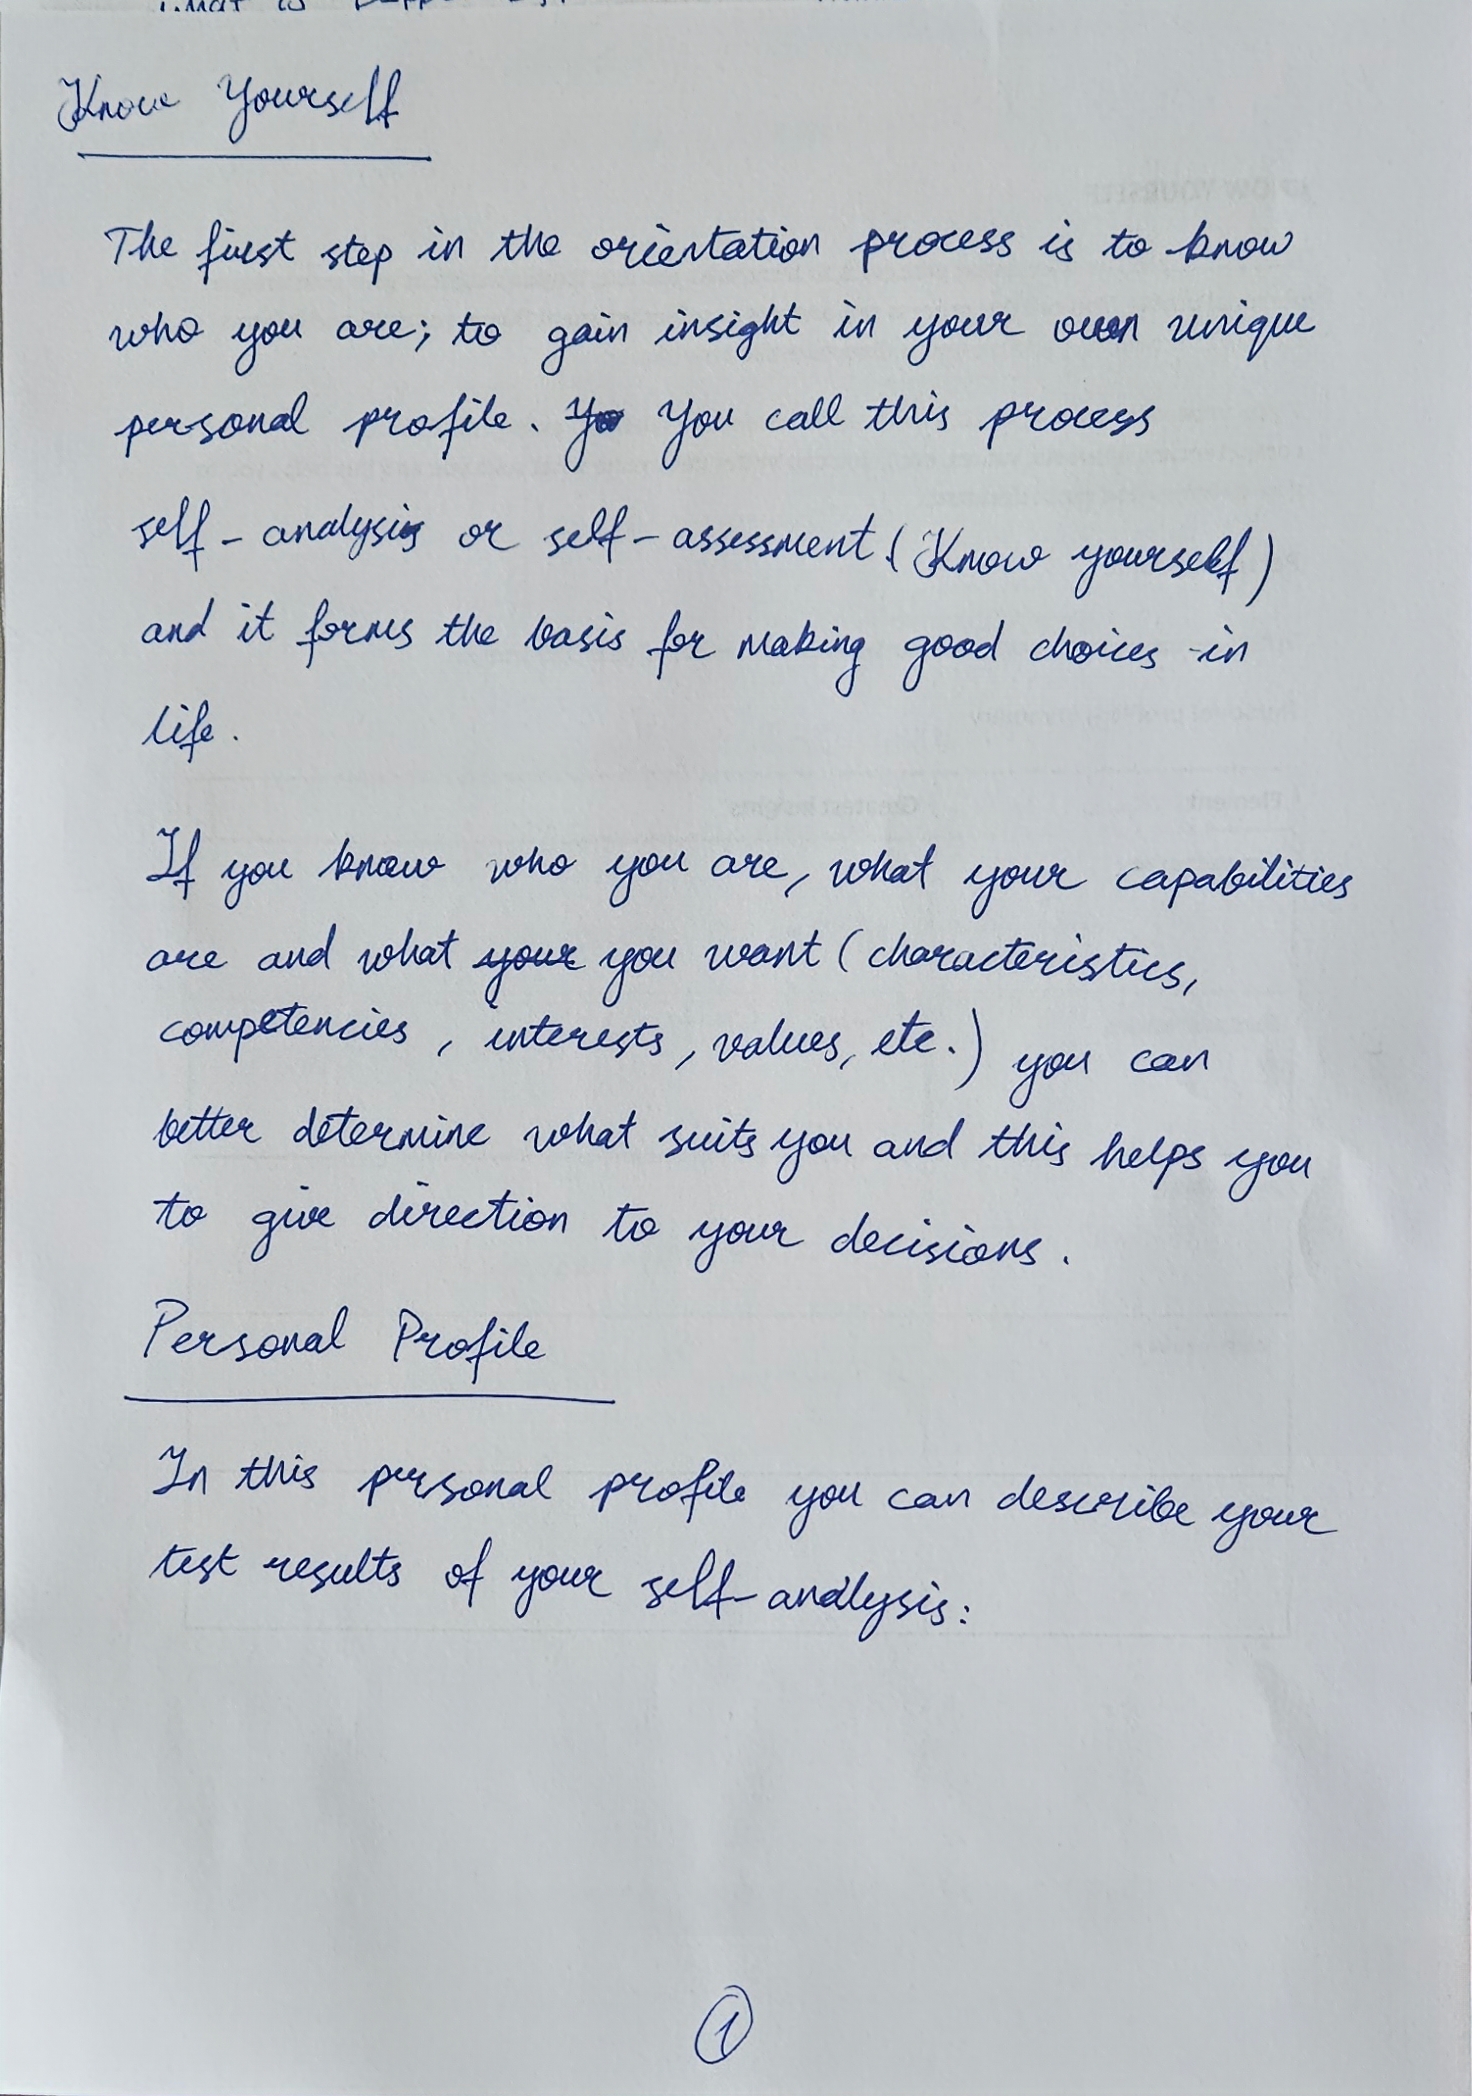 Know Yourself
The first step in the orientation process is to know
who you are; to gain insight in your own unique
personal profile. Yo You call this process
self-analysis or self-assessment (Know yourself)
and it forms the basis for making good choices in
life.
If you know who you are, what your capabilities
are and what your you want (characteristics,
competencies, interests, values, etc.) you can
better determine what suits you and this helps you
to give direction to your decisions.
Personal Profile
In this personal profile you can describe your
test results of your self-analysis:
1